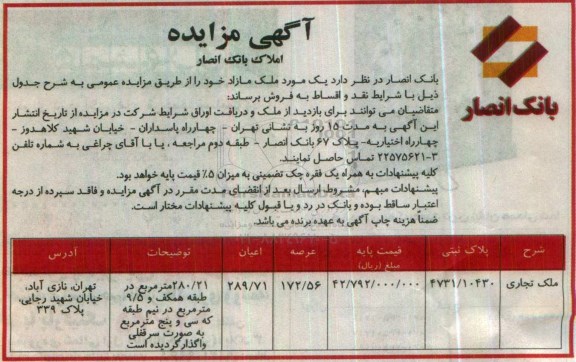 آگهی مزایده
املاک بانک انصار
بانک انصار
بانک انصار در نظر دارد یک مورد ملک مازاد خود را از طریق مزایده عمومی به شرح جدول
ذیل با شرایط نقد و اقساط به فروش برساند:
متقاضیان می توانند برای بازدید از ملک و دریافت اوراق شرایط شرکت در مزایده از تاریخ انتشار
این آگهی به مدت ۱۵ روز به نشانی تهران - چهارراه پاسداران - خیابان شهید کلاهدوز -
چهارراه اختیاریه- پلاک ۶۷ بانک انصار - طبقه دوم مراجعه ، یا با آقای چراغی به شماره تلفن
۲۲۵۷۵۶۲۱-۳ تماس حاصل نمایند.
کلیه پیشنهادات به همراه یک فقره چک تضمینی به میزان ۵٪ قیمت پایه خواهد بود.
پیشنهادات مبهم، مشروط ارسال بعد از انقضای مدت مقرر در آگهی مزایده و فاقد سپرده از درجه
اعتبار ساقط بوده و بانک در رد و یا قبول کلیه پیشنهادات مختار است.
ضمناً هزینه چاپ آگهی به عهده برنده می باشد.
شرح پلاک ثبتی قیمت پایه مبلغ (ریال) عرصه اعیان توضیحات آدرس
ملک تجاری ۴۷۳۱/۱۰۴۳۰ ۴۲/۷۹۲/۰۰۰/۰۰۰ ۱۷۲/۵۶ ۲۸۹/۷۱ ۲۸۰/۲۱مترمربع در تهران، نازی آباد،
طبقه همکف و ۹/۵ خیابان شهید رجایی،
مترمربع در نیم طبقه پلاک ۳۳۹
که سی و پنج مترمربع
به صورت سرقفلی
واگذارگردیده است